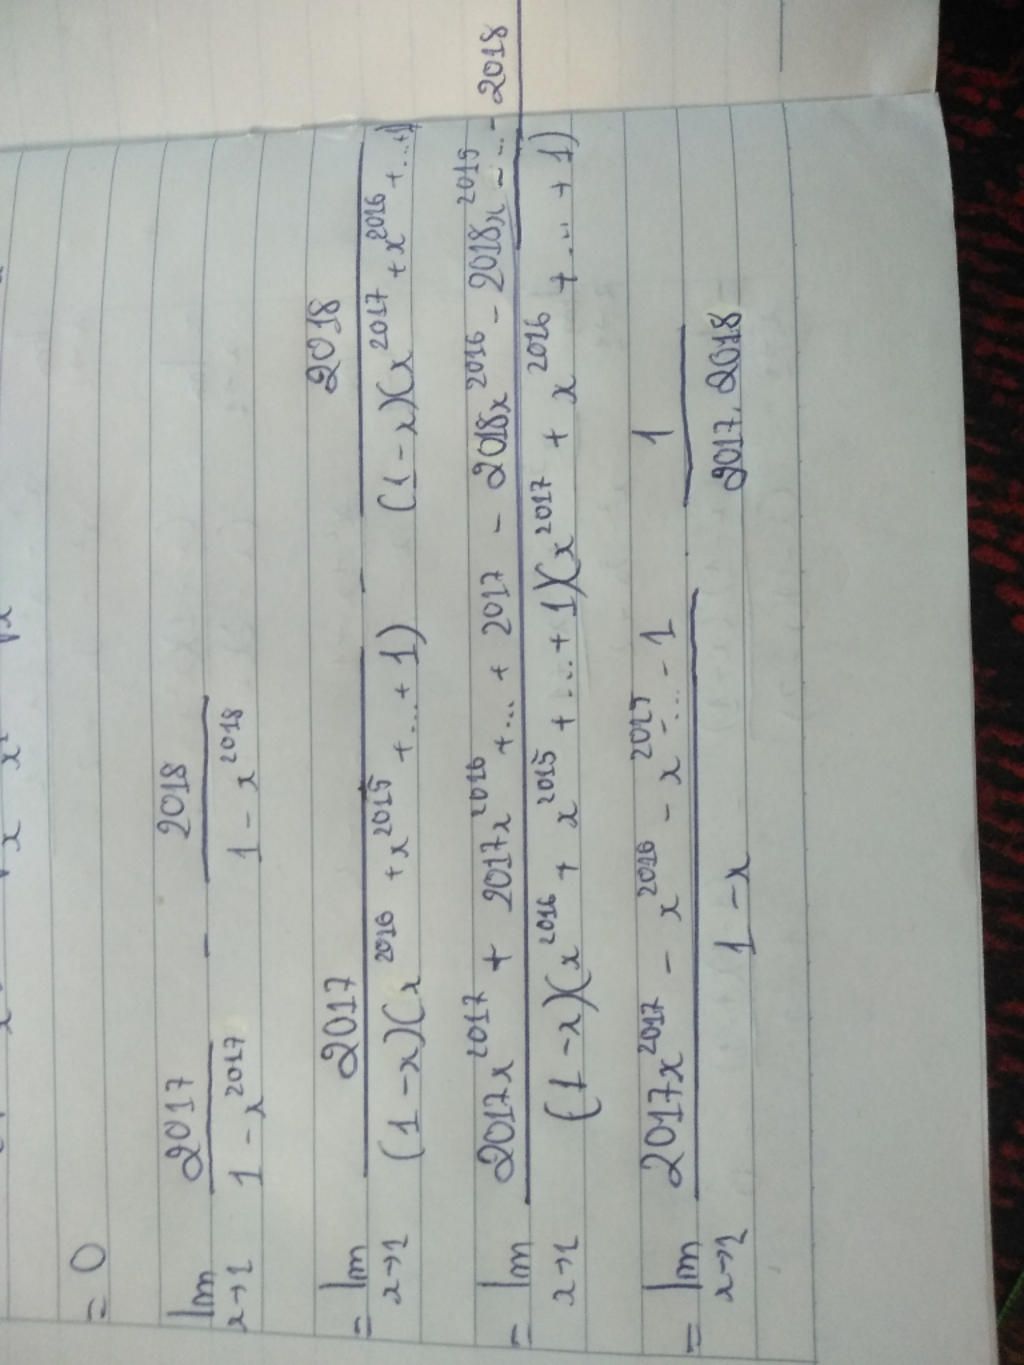 = 0
lim x→1 2017/(1 - x^2017) - 2018/(1 - x^2018)
= lim x→1 2017/((1 - x)(x^2016 + x^2015 + ... + 1)) - 2018/((1 - x)(x^2017 + x^2016 + ... + 1))
= lim x→1 (2017x^2017 + 2017x^2016 + ... + 2017 - 2018x^2016 - 2018x^2015 - ... - 2018)/((1 - x)(x^2016 + x^2015 + ... + 1)(x^2017 + x^2016 + ... + 1))
= lim x→1 (2017x^2017 - x^2016 - x^2015 - ... - 1)/(1 - x) . 1/(2017.2018)